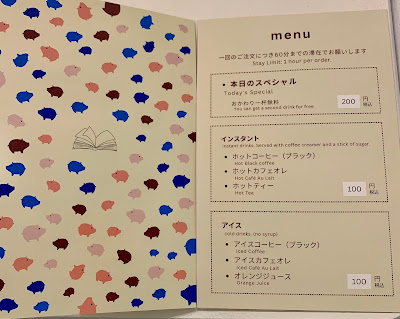 menu
一回のご注文につき60分までの滞在でお願いします
Stay Limit: 1 hour per order.
• 本日のスペシャル
Today's Special
おかわり一杯無料
You can get a second drink for free
200 円 税込
インスタント
Instant drinks, Served with coffee creamer and a stick of sugar.
• ホットコーヒー（ブラック）
Hot Black coffee
• ホットカフェオレ
Hot Café Au Lait
• ホットティー
Hot Tea
100 円 税込
アイス
cold drinks, (no syrup)
• アイスコーヒー（ブラック）
Iced Coffee
• アイスカフェオレ
Iced Café Au Lait
• オレンジジュース
Orange Juice
100 円 税込